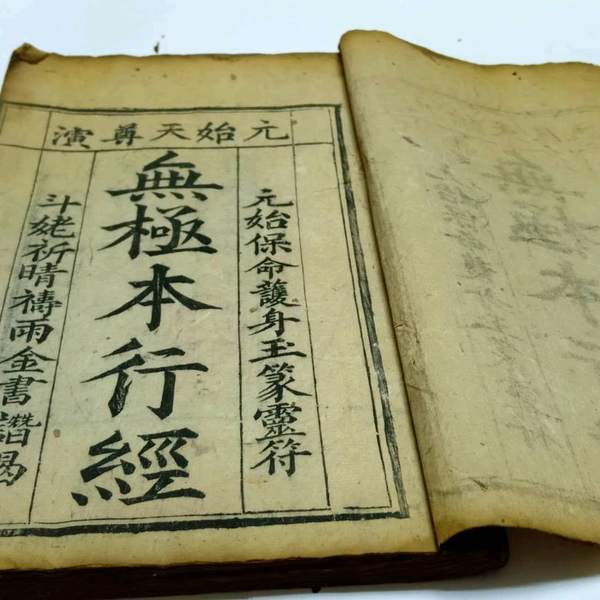 元始天尊演
元始保命護身玉篆靈符
無極本行經
斗姥祈晴禱雨金書